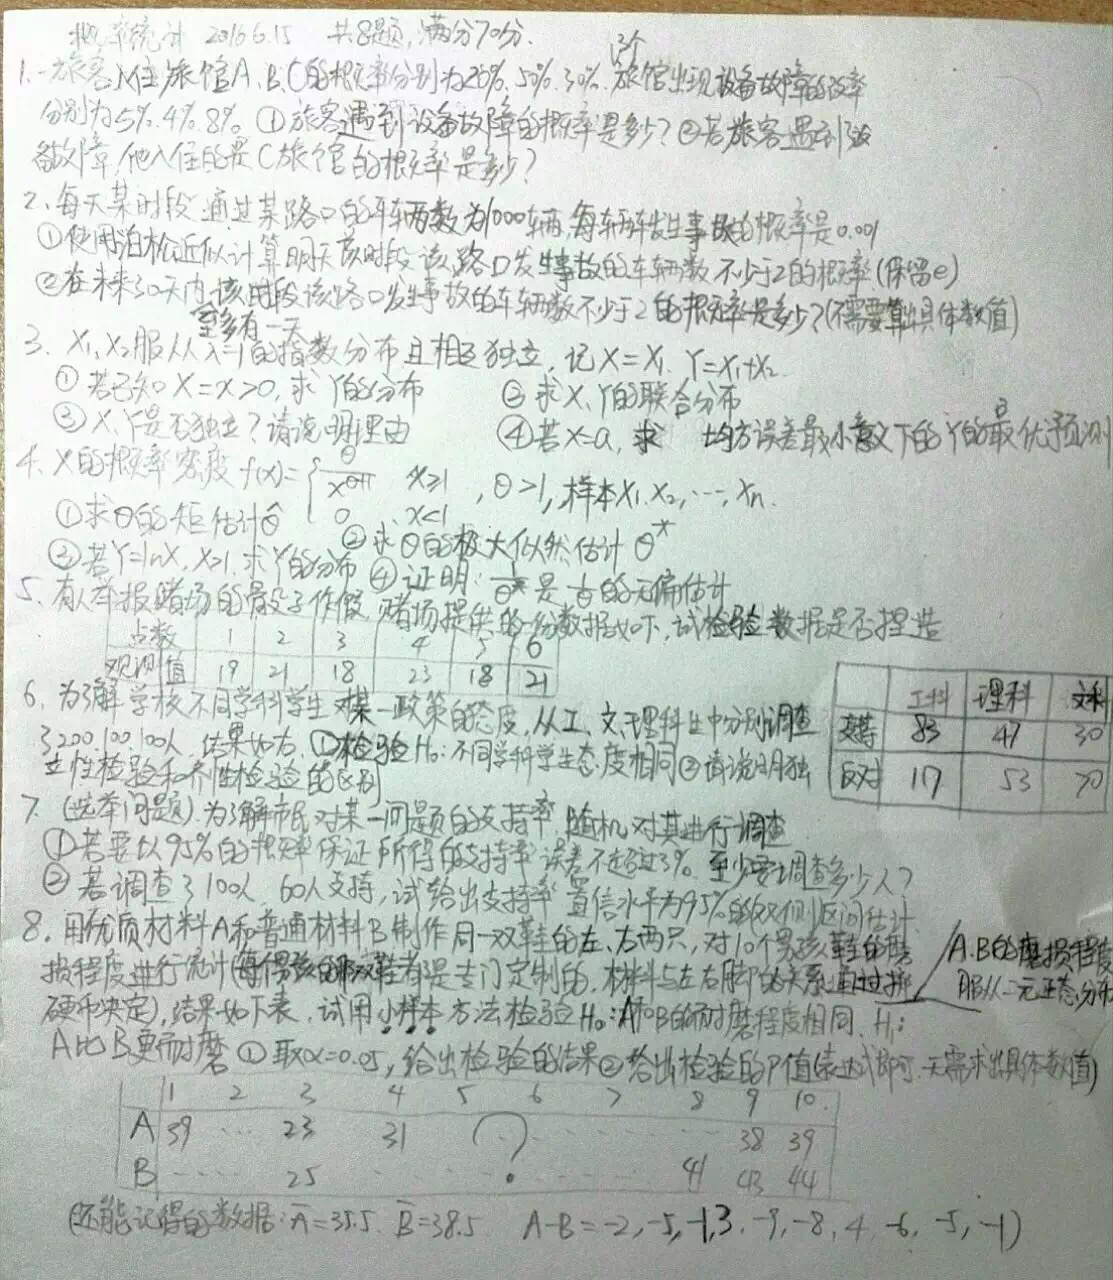 概率统计 2016.6.15 共8题,满分70分.
1.一旅客入住旅馆A、B、C的概率分别为20%.50%.30%.3个旅馆出现设备故障的概率
分别为5%.4%.8%. ①旅客遇到设备故障的概率是多少?②若旅客遇到设
备故障,他入住的是C旅馆的概率是多少?
2、每天某时段通过某路口的车辆数为1000车辆,每辆车发生事故的概率是0.001
①使用泊松近似计算明天该时段该路口发生事故的车辆数不少于2的概率(保留e)
②在未来30天内,至多有一天该时段该路口发生事故的车辆数不少于2的概率是多少?(不需要算出具体数值)
3. X₁,X₂服从λ=1的指数分布且相互独立,记X=X₁. Y=X₁+X₂.
①若已知X=x>0,求Y的分布 ②求X、Y的联合分布
③X、Y是否独立?请说明理由 ④若X=a,求 均方误差最小意义下的Y的最优预测
4. X的概率密度f(x)={ θ/x^(θ+1) x≥1 , θ>1,样本X₁.X₂,…,Xn.
0 x<1
①求θ的矩估计θ̂ ②求θ的极大似然估计θ*
③若Y=lnX,X>1,求Y的分布 ④证明:1/θ*是1/θ的无偏估计
5、有人举报赌场的骰子作假,赌场提供的一份数据如下,试检验数据是否捏造
点数 1 2 3 4 5 6
观测值 19 21 18 23 18 21
6、为了解学校不同学科学生对某一政策的态度,从工、文、理科生中分别调查
了200.100.100人,结果如右,①检验H₀:不同学科学生态度相同②请说明独
立性检验和齐性检验的区别
工科 理科 文科
支持 83 47 30
反对 117 53 70
7、(选举问题).为了解市民对某一问题的支持率,随机对其进行调查
①若要以95%的概率保证所得的支持率误差不超过3%,至少要调查多少人?
②若调查了100人,60人支持,试给出支持率置信水平为95%的双侧区间估计
8、用优质材料A和普通材料B制作同一双鞋的左、右两只,对10个男孩鞋的磨
损程度进行统计(每个男孩的那双鞋都是专门定制的,材料与左右脚的关系通过掷
硬币决定),结果如下表,试用小样本方法检验H₀:A和B的耐磨程度相同.H₁:
A比B更耐磨 ①取α=0.05,给出检验的结果②给出检验的P值(表达式即可,无需求出具体数值)
A.B的磨损程度
服从二元正态分布
1 2 3 4 5 6 7 8 9 10.
A 39 … 23 31 ? 38 39
B 25 41 43 44
(还能记得的数据:Ā=35.5 B̄=38.5 A-B=-2,-5,-1,3,-9,-8,4,-6,-5,-1)